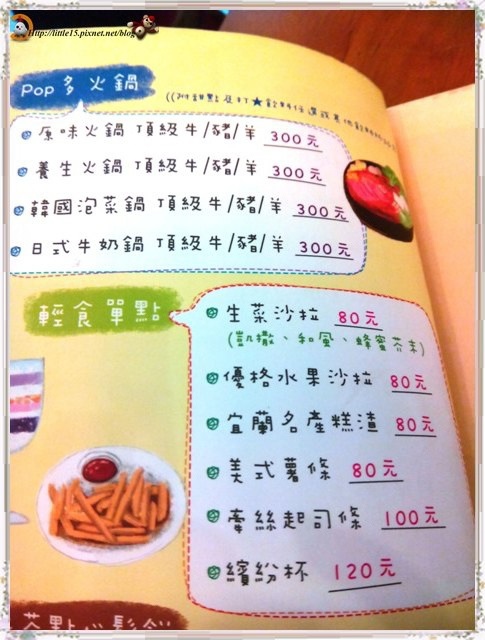 http://little15.pixnet.net/blog
Pop多火鍋
((附甜點及打★飲料任選或其他飲料
原味火鍋 頂級牛/豬/羊 300元
養生火鍋 頂級牛/豬/羊 300元
韓國泡菜鍋 頂級牛/豬/羊 300元
日式牛奶鍋 頂級牛/豬/羊 300元
輕食單點
生菜沙拉 80元
(凱撒、和風、蜂蜜芥末)
優格水果沙拉 80元
宜蘭名產糕渣 80元
美式薯條 80元
牽絲起司條 100元
繽紛杯 120元